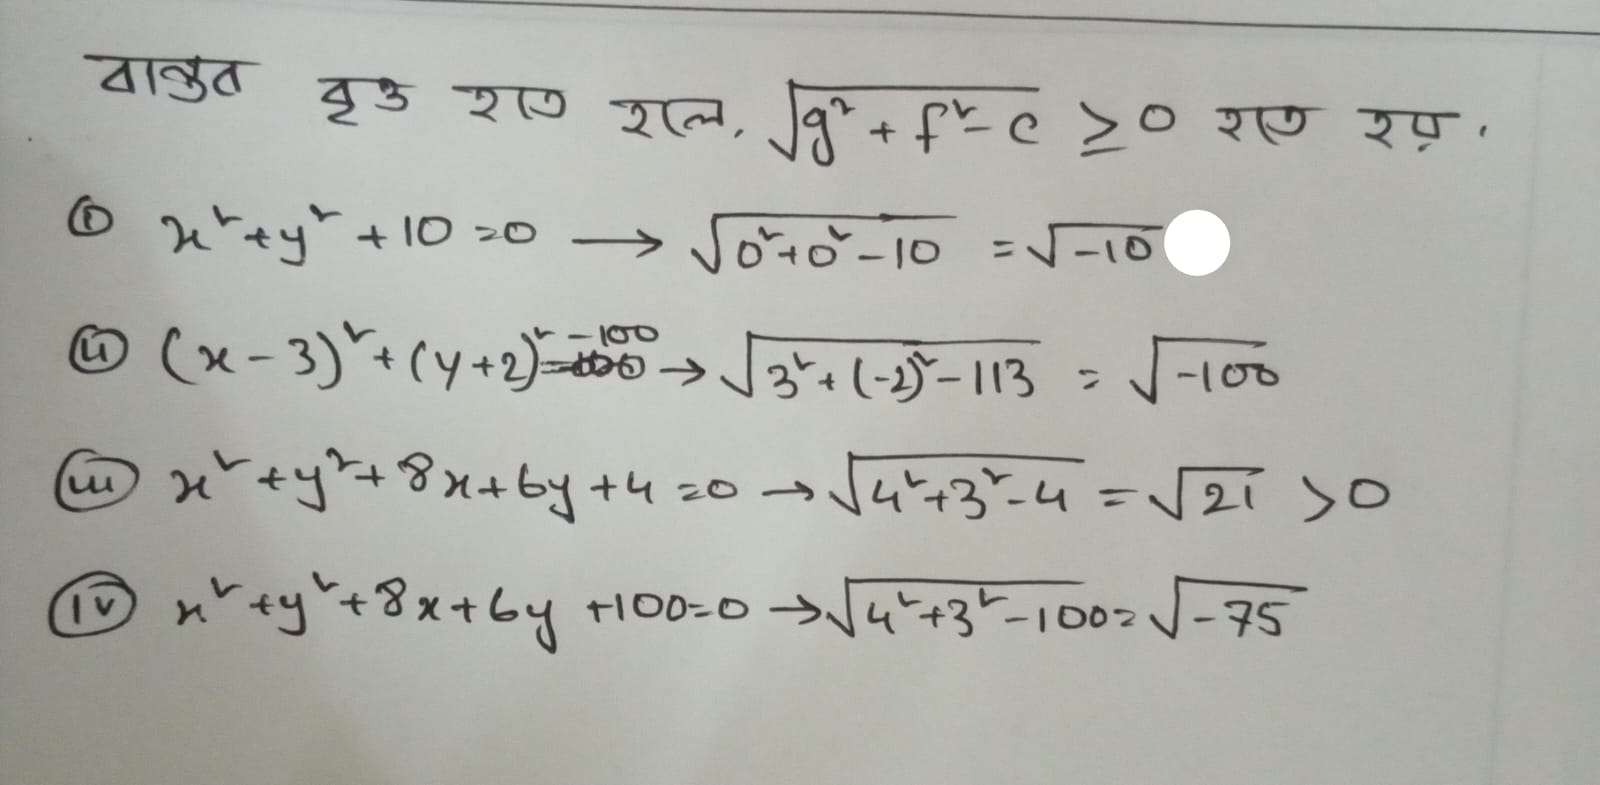 বাস্তব বৃত্ত হতে হলে, √(g²+f²-c) ≥ 0 হতে হয়.
(i) x²+y²+10=0 → √(0²+0²-10) = √-10
(ii) (x-3)²+(y+2)²=-100 → √(3²+(-2)²-113) = √-100
(iii) x²+y²+8x+6y+4=0 → √(4²+3²-4) = √21 >0
(iv) x²+y²+8x+6y+100=0 → √(4²+3²-100) = √-75